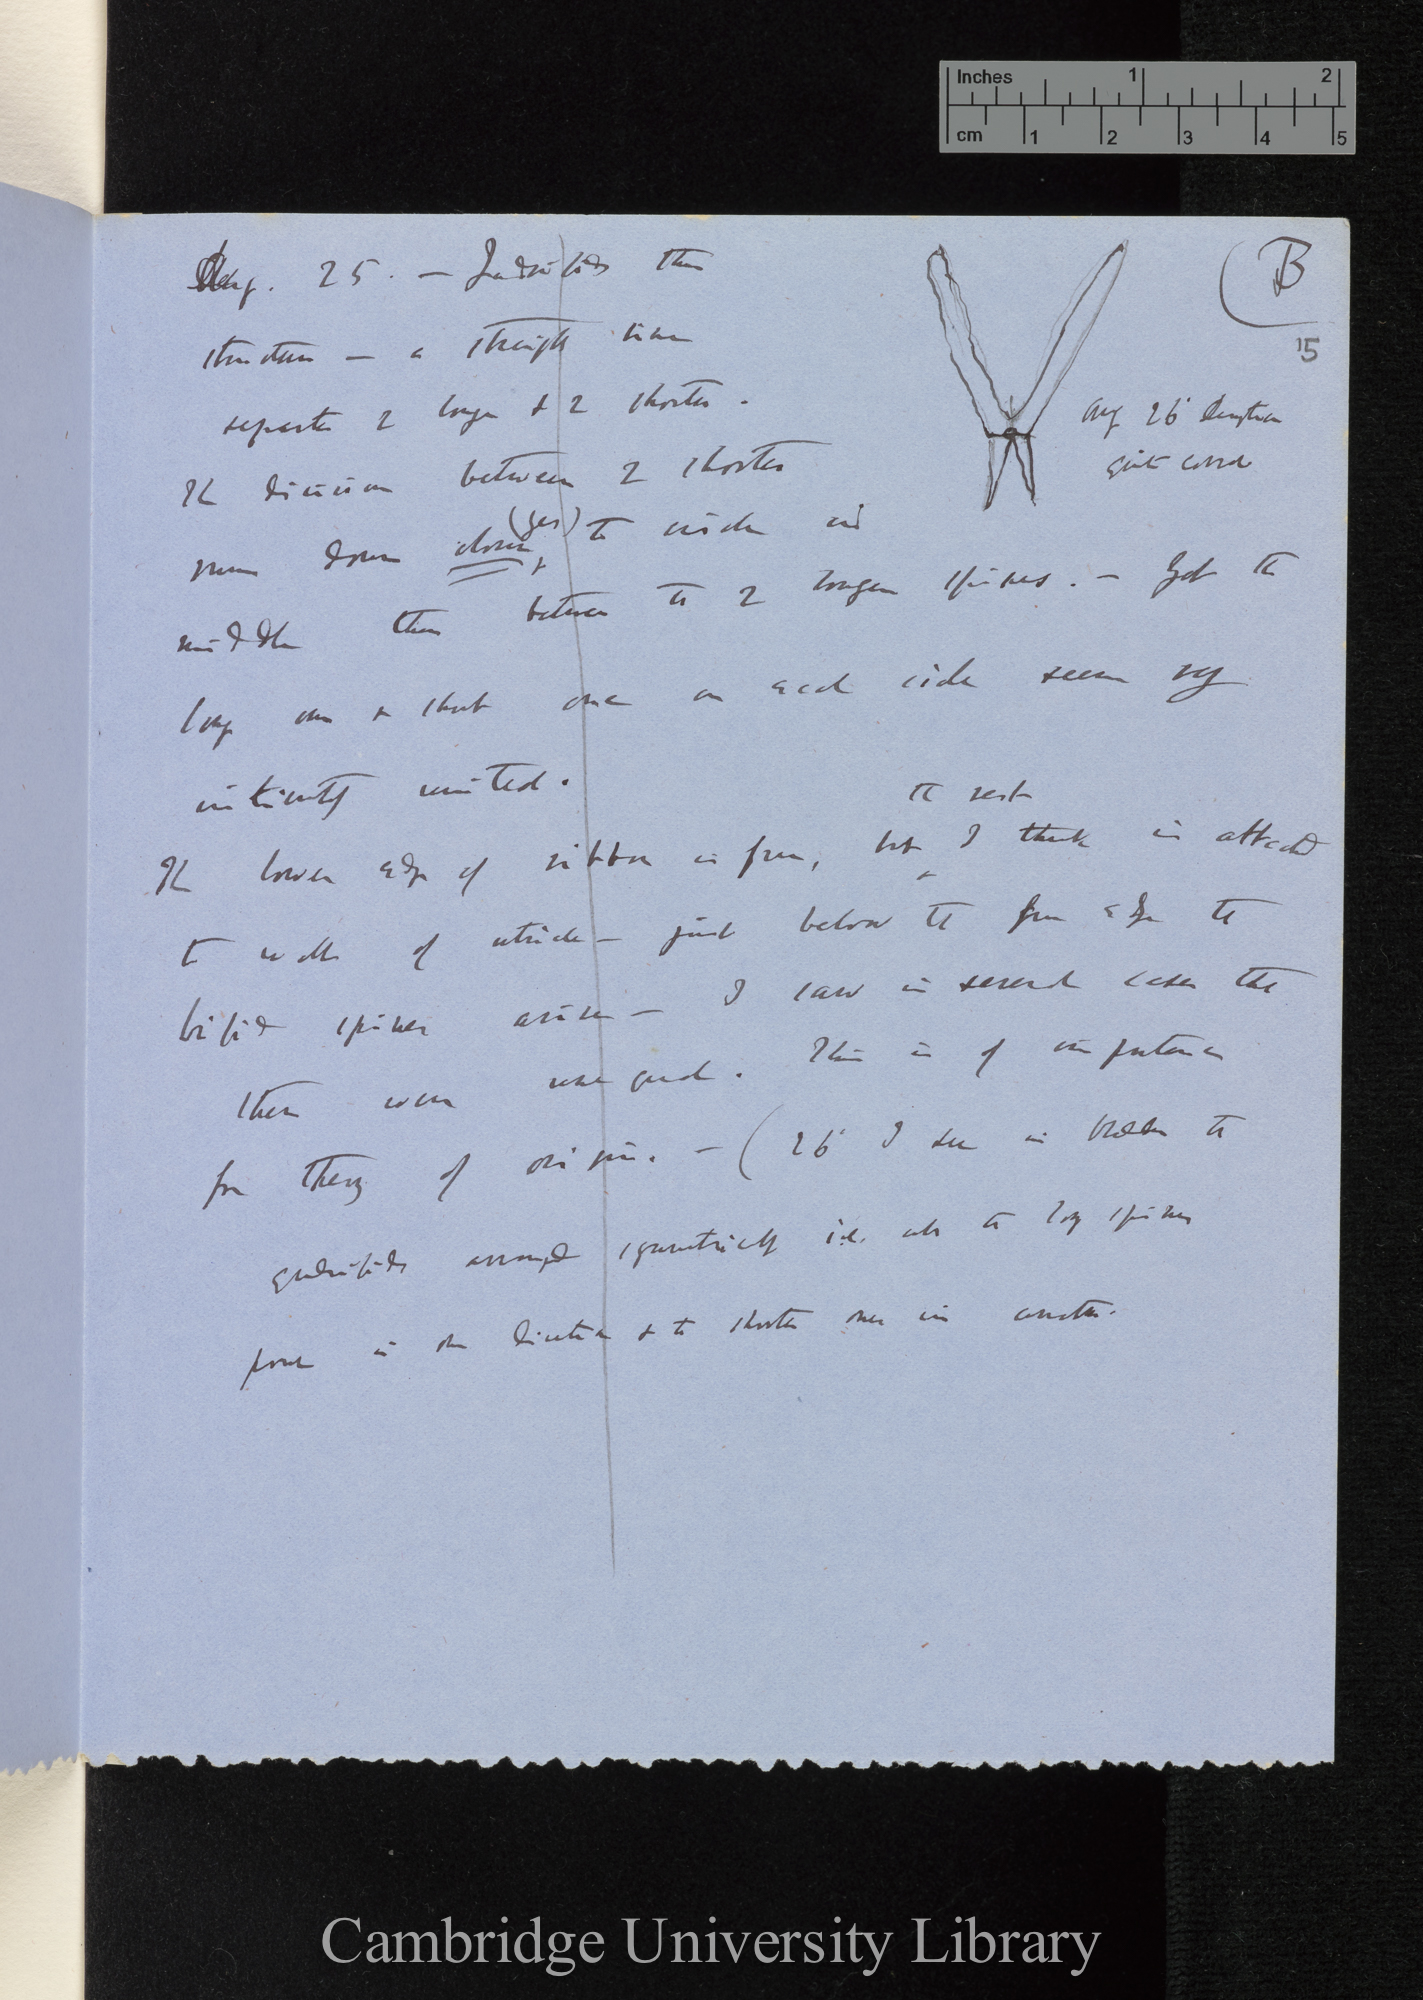 Inches 1 2
cm 1 2 3 4 5
B
15
Aug. 25. — Quadrifids thus
structure — a straight line
separates 2 longer & 2 shorter.
Aug 26 direction
quite correct
The division between 2 shorter
runs down close (yes) to inside and
middle then between the 2 longer spines. — Yet the
long one & short one on each side seem very
intimately united.
The lower edge of ribbon is free, but the rest I think is attached
to walls of utricle — just below the free edge the
bifid spines arise — I saw in several cases that
these were unequal. This is of importance
for theory of origin. — ( 26 I see in bladder the
quadrifids arranged symmetrically i.e. all the long spines
point in one direction & the shorter ones in another.
Cambridge University Library